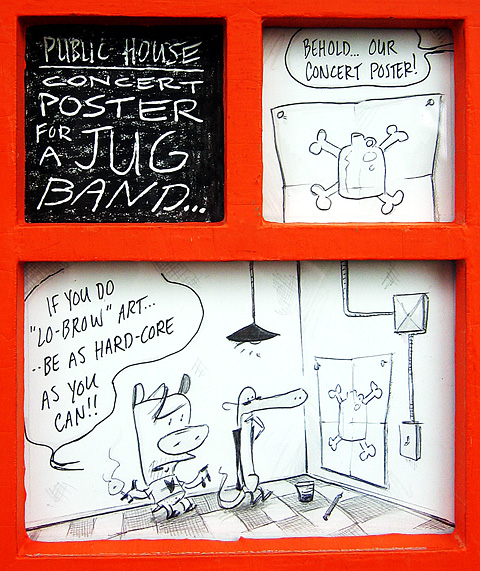 PUBLIC HOUSE
CONCERT
POSTER
FOR
A JUG
BAND...
BEHOLD... OUR
CONCERT POSTER!
IF YOU DO
"LO-BROW" ART...
..BE AS HARD-CORE
AS YOU
CAN!!